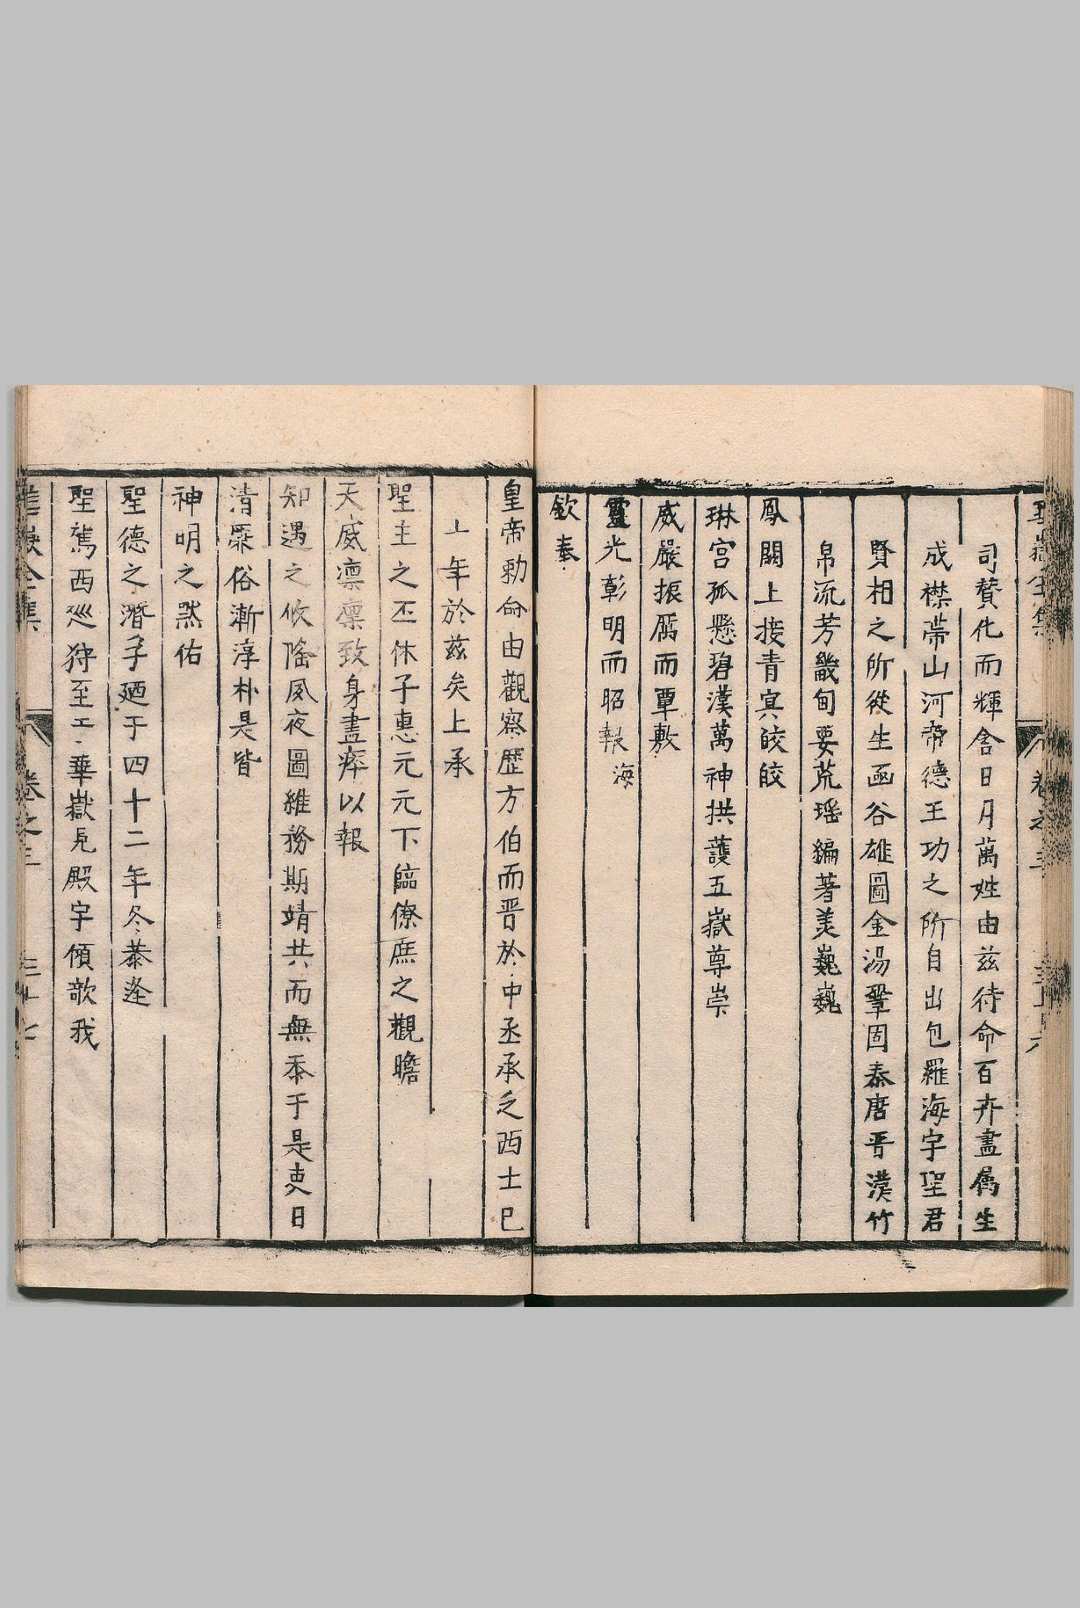 司贊化而輝含日月萬姓由兹待命百卉盡屬生
成襟帶山河帝德王功之所自出包羅海宇聖君
賢相之所從生函谷雄圖金湯鞏固秦唐晉漢竹
帛流芳畿甸要荒瑶編著美巍巍
鳳闕上接青冥皎皎
琳宮孤懸碧漢萬神拱護五嶽尊崇
威嚴振厲而覃敷
靈光彰明而昭報海
欽奉
卷之三
皇帝勅命由觀察歷方伯而晋於中丞承乏西土已
年於兹矣上承
聖主之丕休子惠元元下臨僚庶之觀瞻
天威凛凛致身盡瘁以報
知遇之攸隆夙夜圖維務期靖共而無忝于是吏日
清厥俗漸淳朴是皆
神明之黙佑
聖德之潛孚廼于四十二年冬恭逢
聖駕西巡狩至華嶽見殿宇傾欹我
嶽全集
卷之三